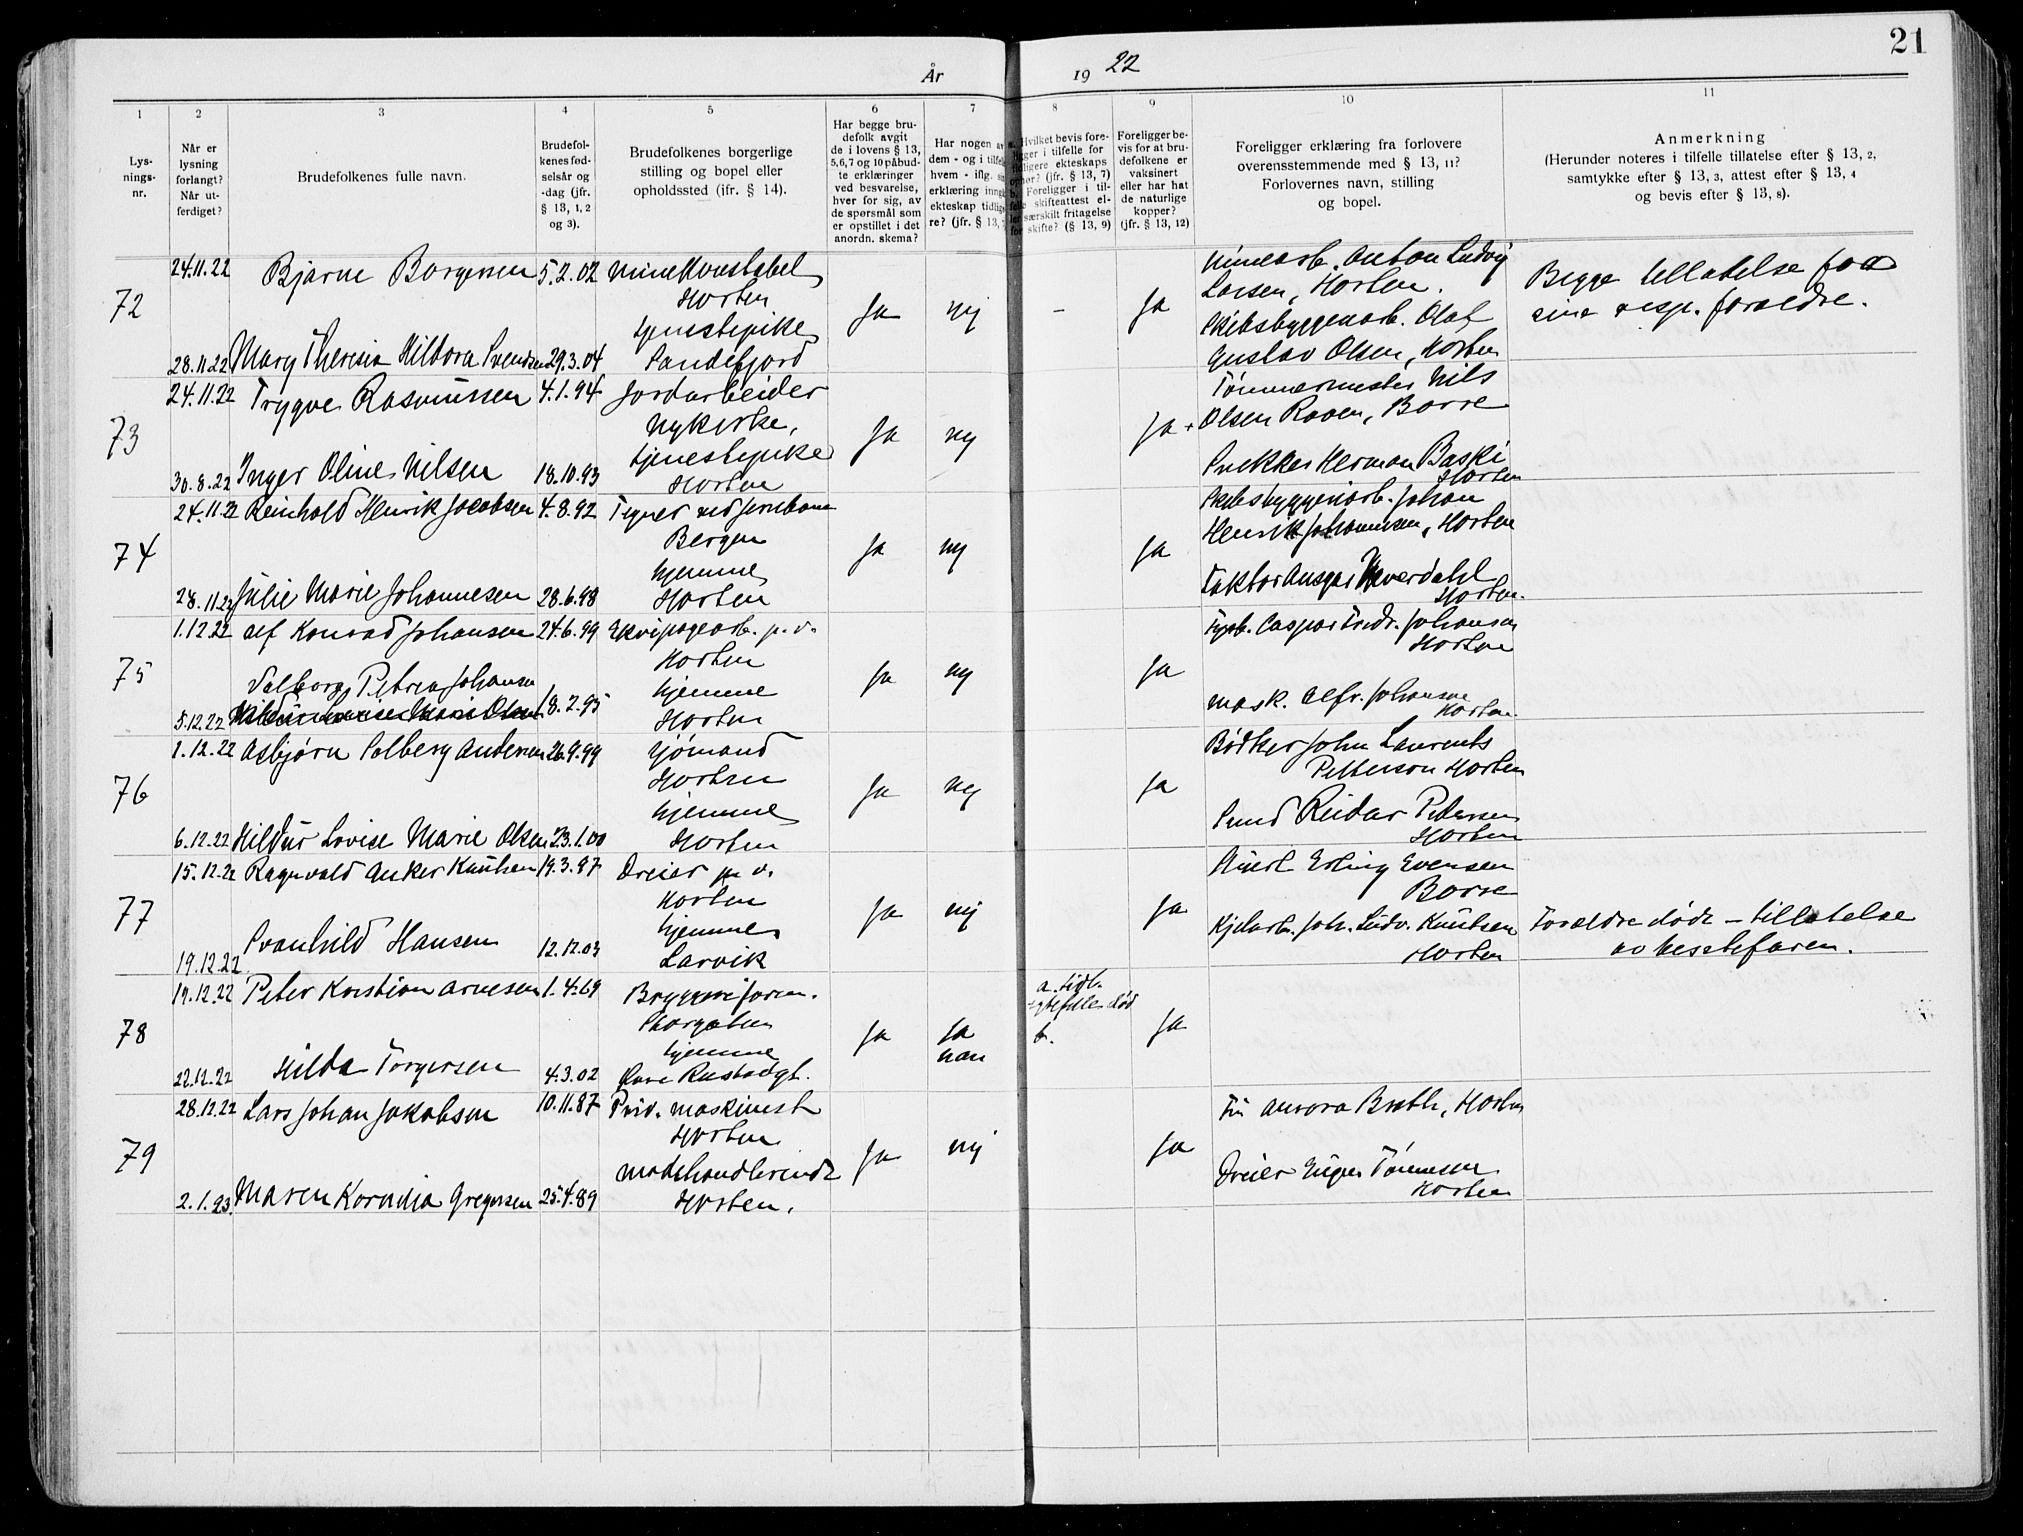 21
År 1922
1 2 3 4 5 6 7 8 9 10 11
Lys-
nings-
nr.
Når er
lysning
forlangt?
Når ut-
ferdiget?
Brudefolkenes fulle navn.
Brudefol-
kenes fød-
selsår og
-dag (jfr.
§ 13, 1, 2
og 3).
Brudefolkenes borgerlige
stilling og bopel eller
opholdssted (ifr. § 14).
Har begge bru-
defolk avgit
de i lovens § 13,
5,6,7 og 10 påbud-
te erklæringer
ved besvarelse,
hver for sig, av
de spørsmål som
er opstillet i det
anordn. skema?
Har nogen av
dem - og i tilfelle
hvem - iflg.
erklæring inngå
ekteskap tidlige-
re? (jfr. § 13,
Hvilket bevis fore-
ligger i tilfelle for
tidligere ekteskaps
ophør? (jfr. § 13, 7)
Foreligger i til-
felle skifteattest el-
ler særskilt fritagelse
for skifte? (§ 13, 9)
Foreligger be-
vis for at bru-
defolkene er
vaksinert
eller har hat
de naturlige
kopper?
(jfr. § 13, 12)
Foreligger erklæring fra forlovere
overensstemmende med § 13, 11?
Forlovernes navn, stilling
og bopel.
Anmerkning
(Herunder noteres i tilfelle tillatelse efter § 13, 2,
samtykke efter § 13, 3, attest efter § 13, 4
og bevis efter § 13, 8).
24.11.22 Bjarne Borgersen 5.2.02 Minekonstabel Minearb. Anton Ludvig
Horten Larsen, Horten. Begge tillatelse fra
72 Ja nej - Ja sine resp. forældre.
tjenestepike Skibsbyggerarb. Olaf
28.11.22 Mary Theresia Svendsen 29.3.04 Sandefjord Gustav Olsen, Horten
24.11.22 Trygve Rasmussen 4.1.94 Jordarbeider Tømmermester Nils
Nykirke, Olsen Raaen, Borre
73 Ja nej Ja
tjenestepike Snekker Herman
30.8.22 Inger Oline Nilsen 18.10.93 Horten Horten
24.11.22 Reinhold Henrik Jacobsen 4.8.92 Tegner ved jernbane Skibsbyggeriarb. Johan
Bergen Henrik Johannesen, Horten
74 Ja nej Ja
hjemme Faktor Ansgar
28.11.22 Julie Marie Johannesen 28.6.98 Horten Horten.
1.12.22 Alf Konrad Johansen 24.6.99 Ekvipagearb. p.v. Caspar Fredr. Johansen
Horten Horten
75 Ja nej Ja
Valborg Petrea Johansen hjemme mask. Alfr. Johansen
5.12.22 Hildur Lovise Marie Olsen 18.2.95 Horten Horten.
1.12.22 Asbjørn Solberg Andersen 26.9.99 Sjømand Bødker John Laurents
Horten Petterson Horten
76 Ja nej Ja
hjemme Reidar Petersen
6.12.22 Hildur Lovise Marie Olsen 23.1.00 Horten Horten
15.12.22 Ragnvald Anker Knutsen 19.3.97 Dreier p.v. Erling Evensen
Horten Borre
77 Ja nej Ja
Svanhild Hansen hjemme Kjelarb. Joh. Ludv. Knutsen Forældre døde - tillatelse
19.12.22 12.12.03 Larvik Horten av bestefaren.
19.12.22 Peter Kristian Arnesen 1.4.69 Bryggeriform. a. tidl.
Storgaten egtefelle død
78 Ja Ja b. Ja
Hilda Torgersen hjemme han
22.12.22 4.3.02 Øvre Rustadgt.
28.12.22 Lars Johan Jakobsen 10.11.87 Priv. maskinist Frk Aurora Breth, Horten
Horten
79 Ja nej Ja
motehandlerinde Dreier Tønnesen
2.1.23. Maren Kornelia Gregersen 25.4.89 Horten. Horten